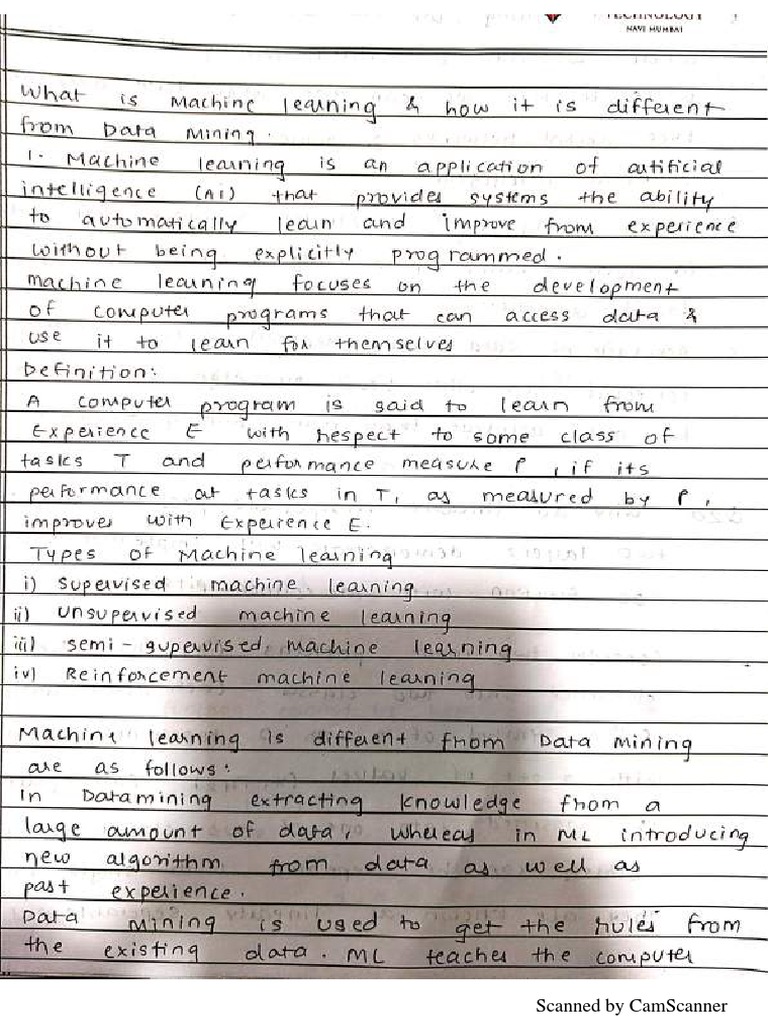 TECHNOLOGY
NAVI MUMBAI
What is Machine learning & how it is different
from Data Mining.
1. Machine learning is an application of autificial
intelligence (AI) that provides systems the ability
to automatically learn and improve from experience
without being explicitly programmed.
machine learning focuses on the development
of computer programs that can access data &
use it to learn for themselves
Definition:
A computer program is said to learn from
Experience E with respect to some class of
tasks T and performance measure P, if its
performance at tasks in T, as measured by P,
improves with Experience E.
Types of Machine learning
i) Supervised machine learning
ii) unsupervised machine learning
iii) semi-supervised machine learning
iv) Reinforcement machine learning
Machine learning is different from Data mining
are as follows:
In Datamining extracting knowledge from a
large amount of data, whereas in ML introducing
new algorithm from data as well as
past experience.
Data mining is used to get the rules from
the existing data. ML teaches the computer
Scanned by CamScanner